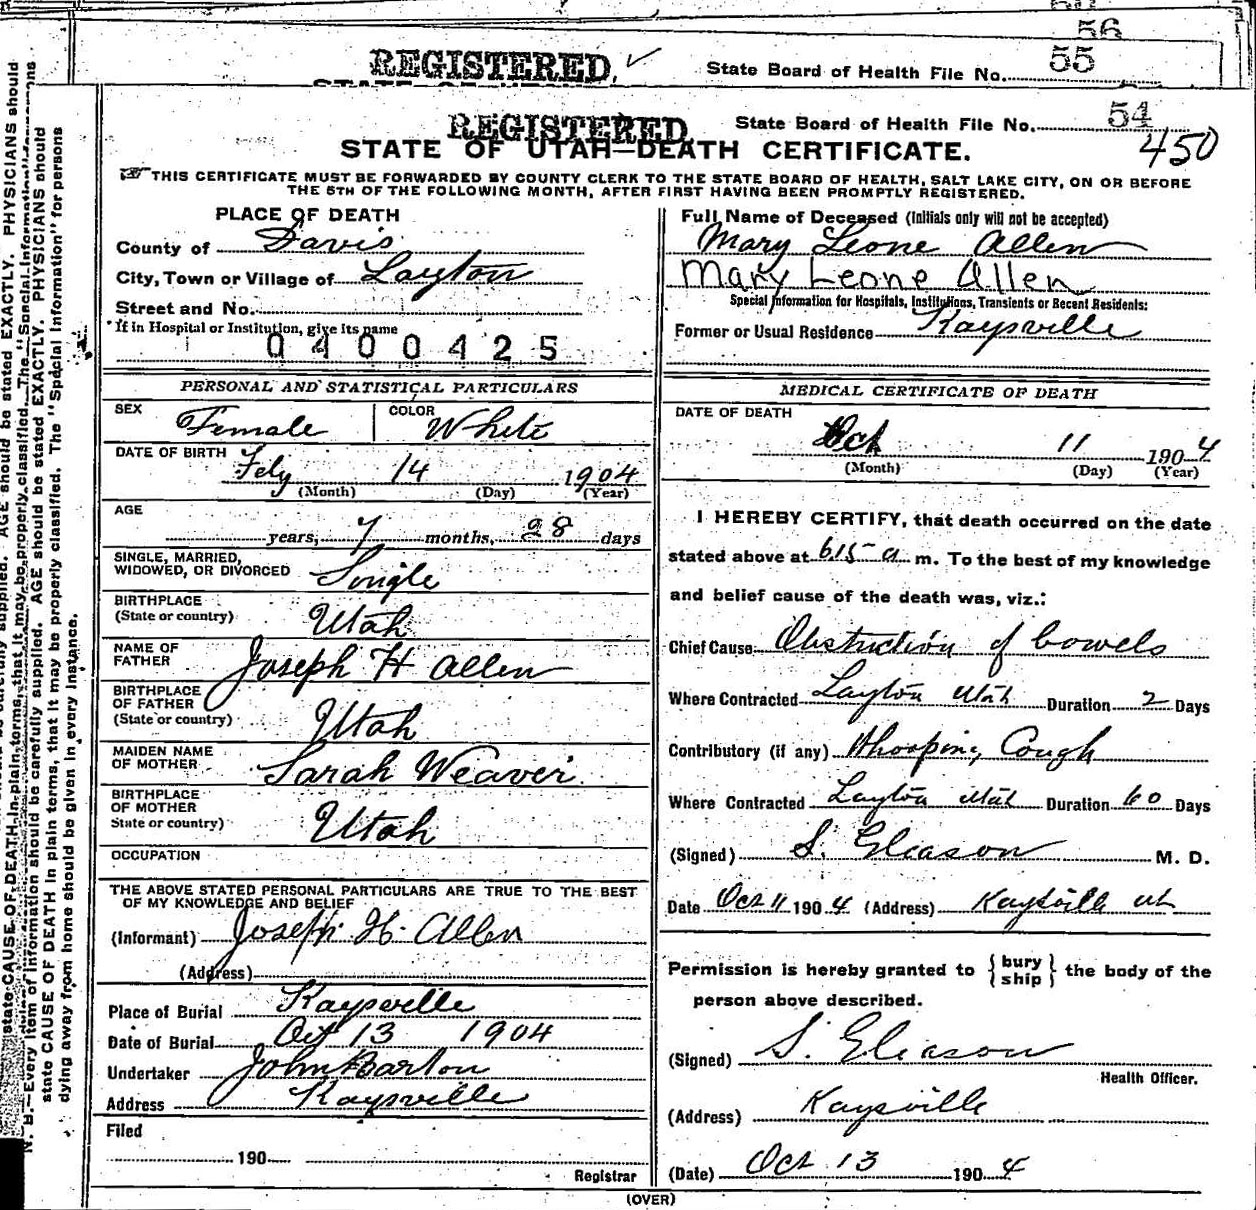 56
REGISTERED. ✓ State Board of Health File No. 55
REGISTERED State Board of Health File No. 54
450
STATE OF UTAH—DEATH CERTIFICATE.
☞ THIS CERTIFICATE MUST BE FORWARDED BY COUNTY CLERK TO THE STATE BOARD OF HEALTH, SALT LAKE CITY, ON OR BEFORE
THE 5TH OF THE FOLLOWING MONTH, AFTER FIRST HAVING BEEN PROMPTLY REGISTERED.
PLACE OF DEATH
County of Davis
City, Town or Village of Layton
Street and No.
If in Hospital or Institution, give its name
0400425
Full Name of Deceased (Initials only will not be accepted)
Mary Leone Allen
Mary Leone Allen
Special Information for Hospitals, Institutions, Transients or Recent Residents:
Former or Usual Residence Kaysville
PERSONAL AND STATISTICAL PARTICULARS
SEX Female COLOR White
DATE OF BIRTH Feby 14 1904
(Month) (Day) (Year)
AGE
years, 7 months, 28 days
SINGLE, MARRIED,
WIDOWED, OR DIVORCED Single
BIRTHPLACE
(State or country) Utah
NAME OF
FATHER Joseph H Allen
BIRTHPLACE
OF FATHER
(State or country) Utah
MAIDEN NAME
OF MOTHER Sarah Weaver
BIRTHPLACE
OF MOTHER
State or country) Utah
OCCUPATION
THE ABOVE STATED PERSONAL PARTICULARS ARE TRUE TO THE BEST
OF MY KNOWLEDGE AND BELIEF
(Informant) Joseph H. Allen
(Address)
Place of Burial Kaysville
Date of Burial Oct 13 1904
Undertaker John Barton
Address Kaysville
Filed
190
Registrar
MEDICAL CERTIFICATE OF DEATH
DATE OF DEATH
Oct 11 1904
(Month) (Day) (Year)
I HEREBY CERTIFY, that death occurred on the date
stated above at 615 a m. To the best of my knowledge
and belief cause of the death was, viz.:
Chief Cause Obstruction of bowels
Where Contracted Layton Utah Duration 2 Days
Contributory (if any) Whooping Cough
Where Contracted Layton Utah Duration 60 Days
(Signed) S. Gleason M. D.
Date Oct 11 1904 (Address) Kaysville Ut
Permission is hereby granted to {bury
ship} the body of the
person above described.
(Signed) S. Gleason
Health Officer.
(Address) Kaysville
(Date) Oct 13 1904
(OVER)
N. B.—Every item of information should be carefully supplied. AGE should be stated EXACTLY. PHYSICIANS should
state CAUSE OF DEATH in plain terms, that it may be properly classified. The "Special Information" for persons
dying away from home should be given in every instance.